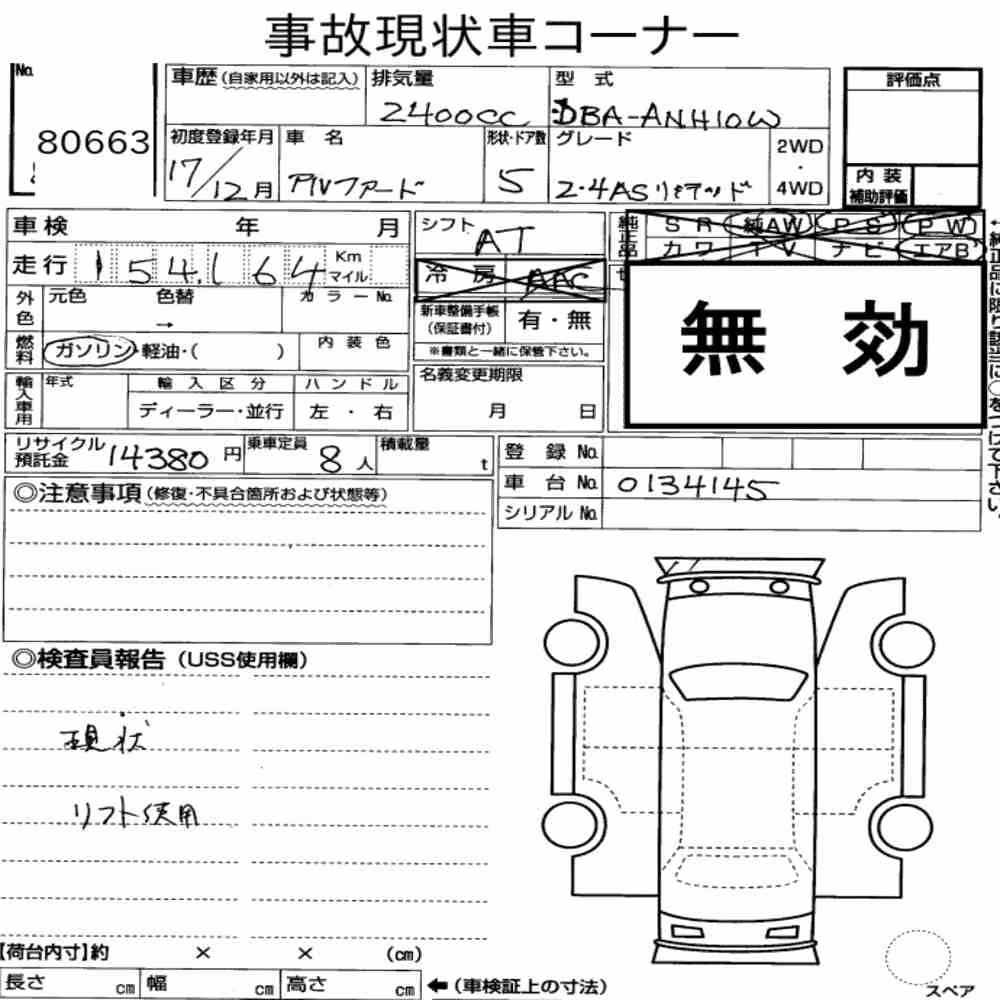 事故現状車コーナー
No. 80663
車歴(自家用以外は記入) 排気量 2400cc 型式 DBA-ANH10W
評価点
初度登録年月 17/12月 車名 アルファード 形状・ドア数 5 グレード 2.4AS リミテッド 2WD・4WD
内装補助評価
車検 年 月 シフト AT
純正品 SR 純AW PS PW
カワ TV ナビ エアB
走行 154,164 Km マイル 冷房 AAC
外色 元色 色替 → カラーNo.
新車整備手帳(保証書付) 有・無
※書類と一緒に保管下さい。
燃料 ガソリン・軽油・( ) 内装色
無効
←純正品に限り該当に○をつけて下さい。
輸入車用 年式 輸入区分 ディーラー・並行 ハンドル 左・右
名義変更期限 月 日
リサイクル預託金 14380円 乗車定員 8人 積載量 t
登録No.
車台No. 0134145
シリアルNo.
◎注意事項(修復・不具合箇所および状態等)
◎検査員報告(USS使用欄)
現状
リフト使用
【荷台内寸】約 × × (cm)
長さ cm 幅 cm 高さ cm ←(車検証上の寸法)
スペア